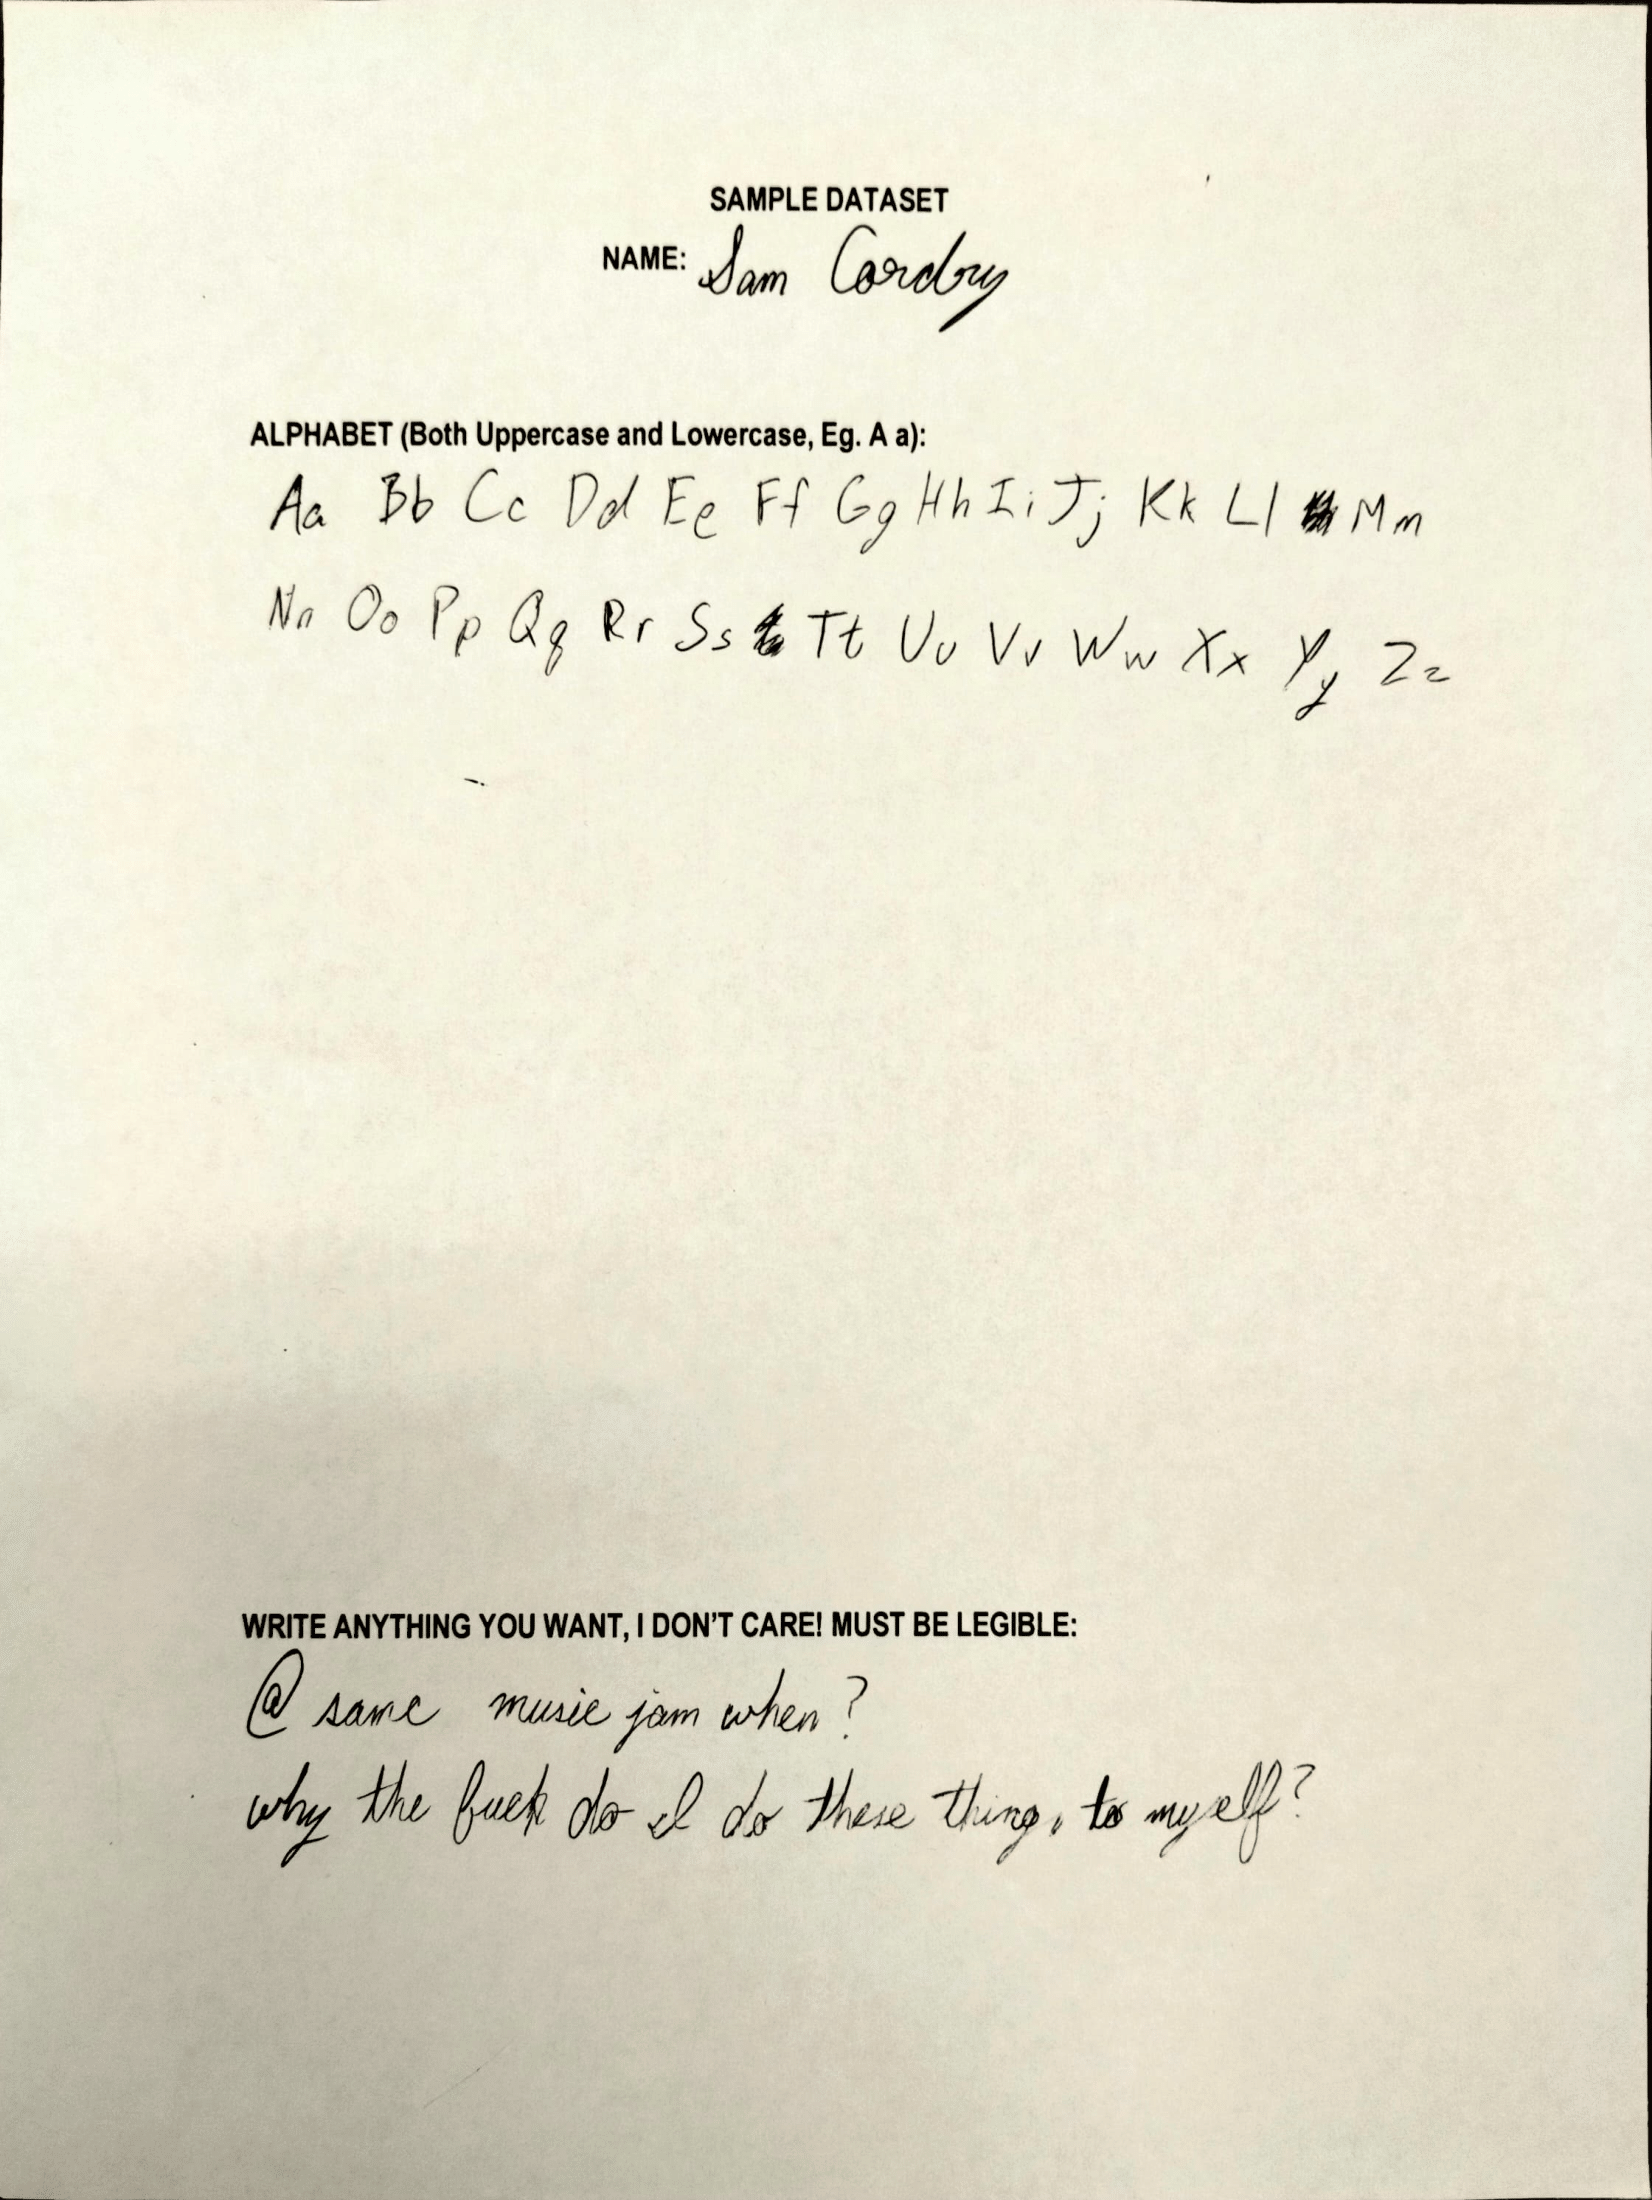 SAMPLE DATASET
NAME: Sam Cordry
ALPHABET (Both Uppercase and Lowercase, Eg. A a):
Aa Bb Cc Dd Ee Ff Gg Hh Ii Jj Kk Ll Mm
Nn Oo Pp Qq Rr Ss Tt Uu Vv Ww Xx Yy Zz
WRITE ANYTHING YOU WANT, I DON'T CARE! MUST BE LEGIBLE:
@ same music jam when?
why the fuck do I do these things to myself?